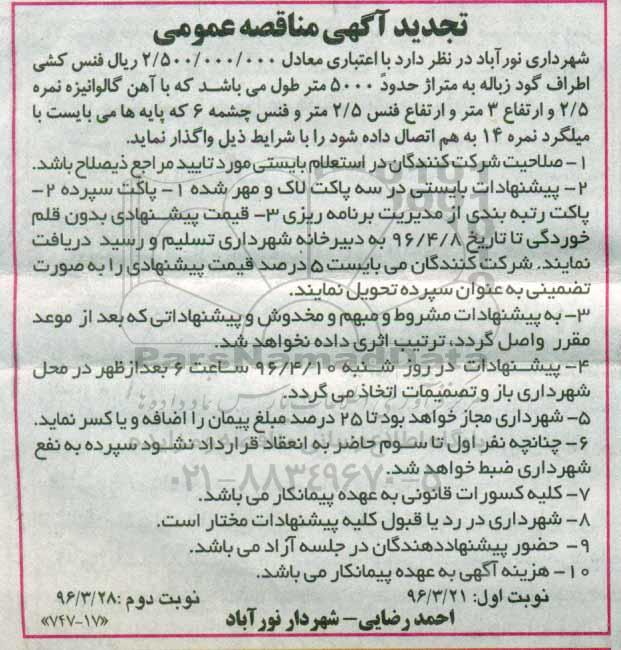 تجدید آگهی مناقصه عمومی
شهرداری نورآباد در نظر دارد با اعتباری معادل ۲/۵۰۰/۰۰۰/۰۰۰ ریال فنس کشی
اطراف گود زباله به متراژ حدوداً ۵۰۰۰ متر طول می باشد که با آهن گالوانیزه نمره
۲/۵ و ارتفاع ۳ متر و ارتفاع فنس ۲/۵ متر و فنس چشمه ۶ که پایه ها می بایست با
میلگرد نمره ۱۴ به هم اتصال داده شود را با شرایط ذیل واگذار نماید.
۱- صلاحیت شرکت کنندگان در استعلام بایستی مورد تایید مراجع ذیصلاح باشد.
۲- پیشنهادات بایستی در سه پاکت لاک و مهر شده ۱- پاکت سپرده ۲-
پاکت رتبه بندی از مدیریت برنامه ریزی ۳- قیمت پیشنهادی بدون قلم
خوردگی تا تاریخ ۹۶/۴/۸ به دبیرخانه شهرداری تسلیم و رسید دریافت
نمایند. شرکت کنندگان می بایست ۵ درصد قیمت پیشنهادی را به صورت
تضمینی به عنوان سپرده تحویل نمایند.
۳- به پیشنهادات مشروط و مبهم و مخدوش و پیشنهاداتی که بعد از موعد
مقرر واصل گردد، ترتیب اثری داده نخواهد شد.
ParsNamadData
۴- پیشنهادات در روز شنبه ۹۶/۴/۱۰ ساعت ۶ بعدازظهر در محل
شهرداری باز و تصمیمات اتخاذ می گردد.
۵- شهرداری مجاز خواهد بود تا ۲۵ درصد مبلغ پیمان را اضافه و یا کسر نماید.
۶- چنانچه نفر اول تا سوم حاضر به انعقاد قرارداد نشود سپرده به نفع
شهرداری ضبط خواهد شد.
۰۲۱-۸۸۳۴۹۶۷۰-۵
۷- کلیه کسورات قانونی به عهده پیمانکار می باشد.
۸- شهرداری در رد یا قبول کلیه پیشنهادات مختار است.
۹- حضور پیشنهاددهندگان در جلسه آزاد می باشد.
۱۰- هزینه آگهی به عهده پیمانکار می باشد.
نوبت اول: ۹۶/۳/۲۱ نوبت دوم: ۹۶/۳/۲۸
احمد رضایی- شهردار نورآباد «۷۴۷-۱۷»